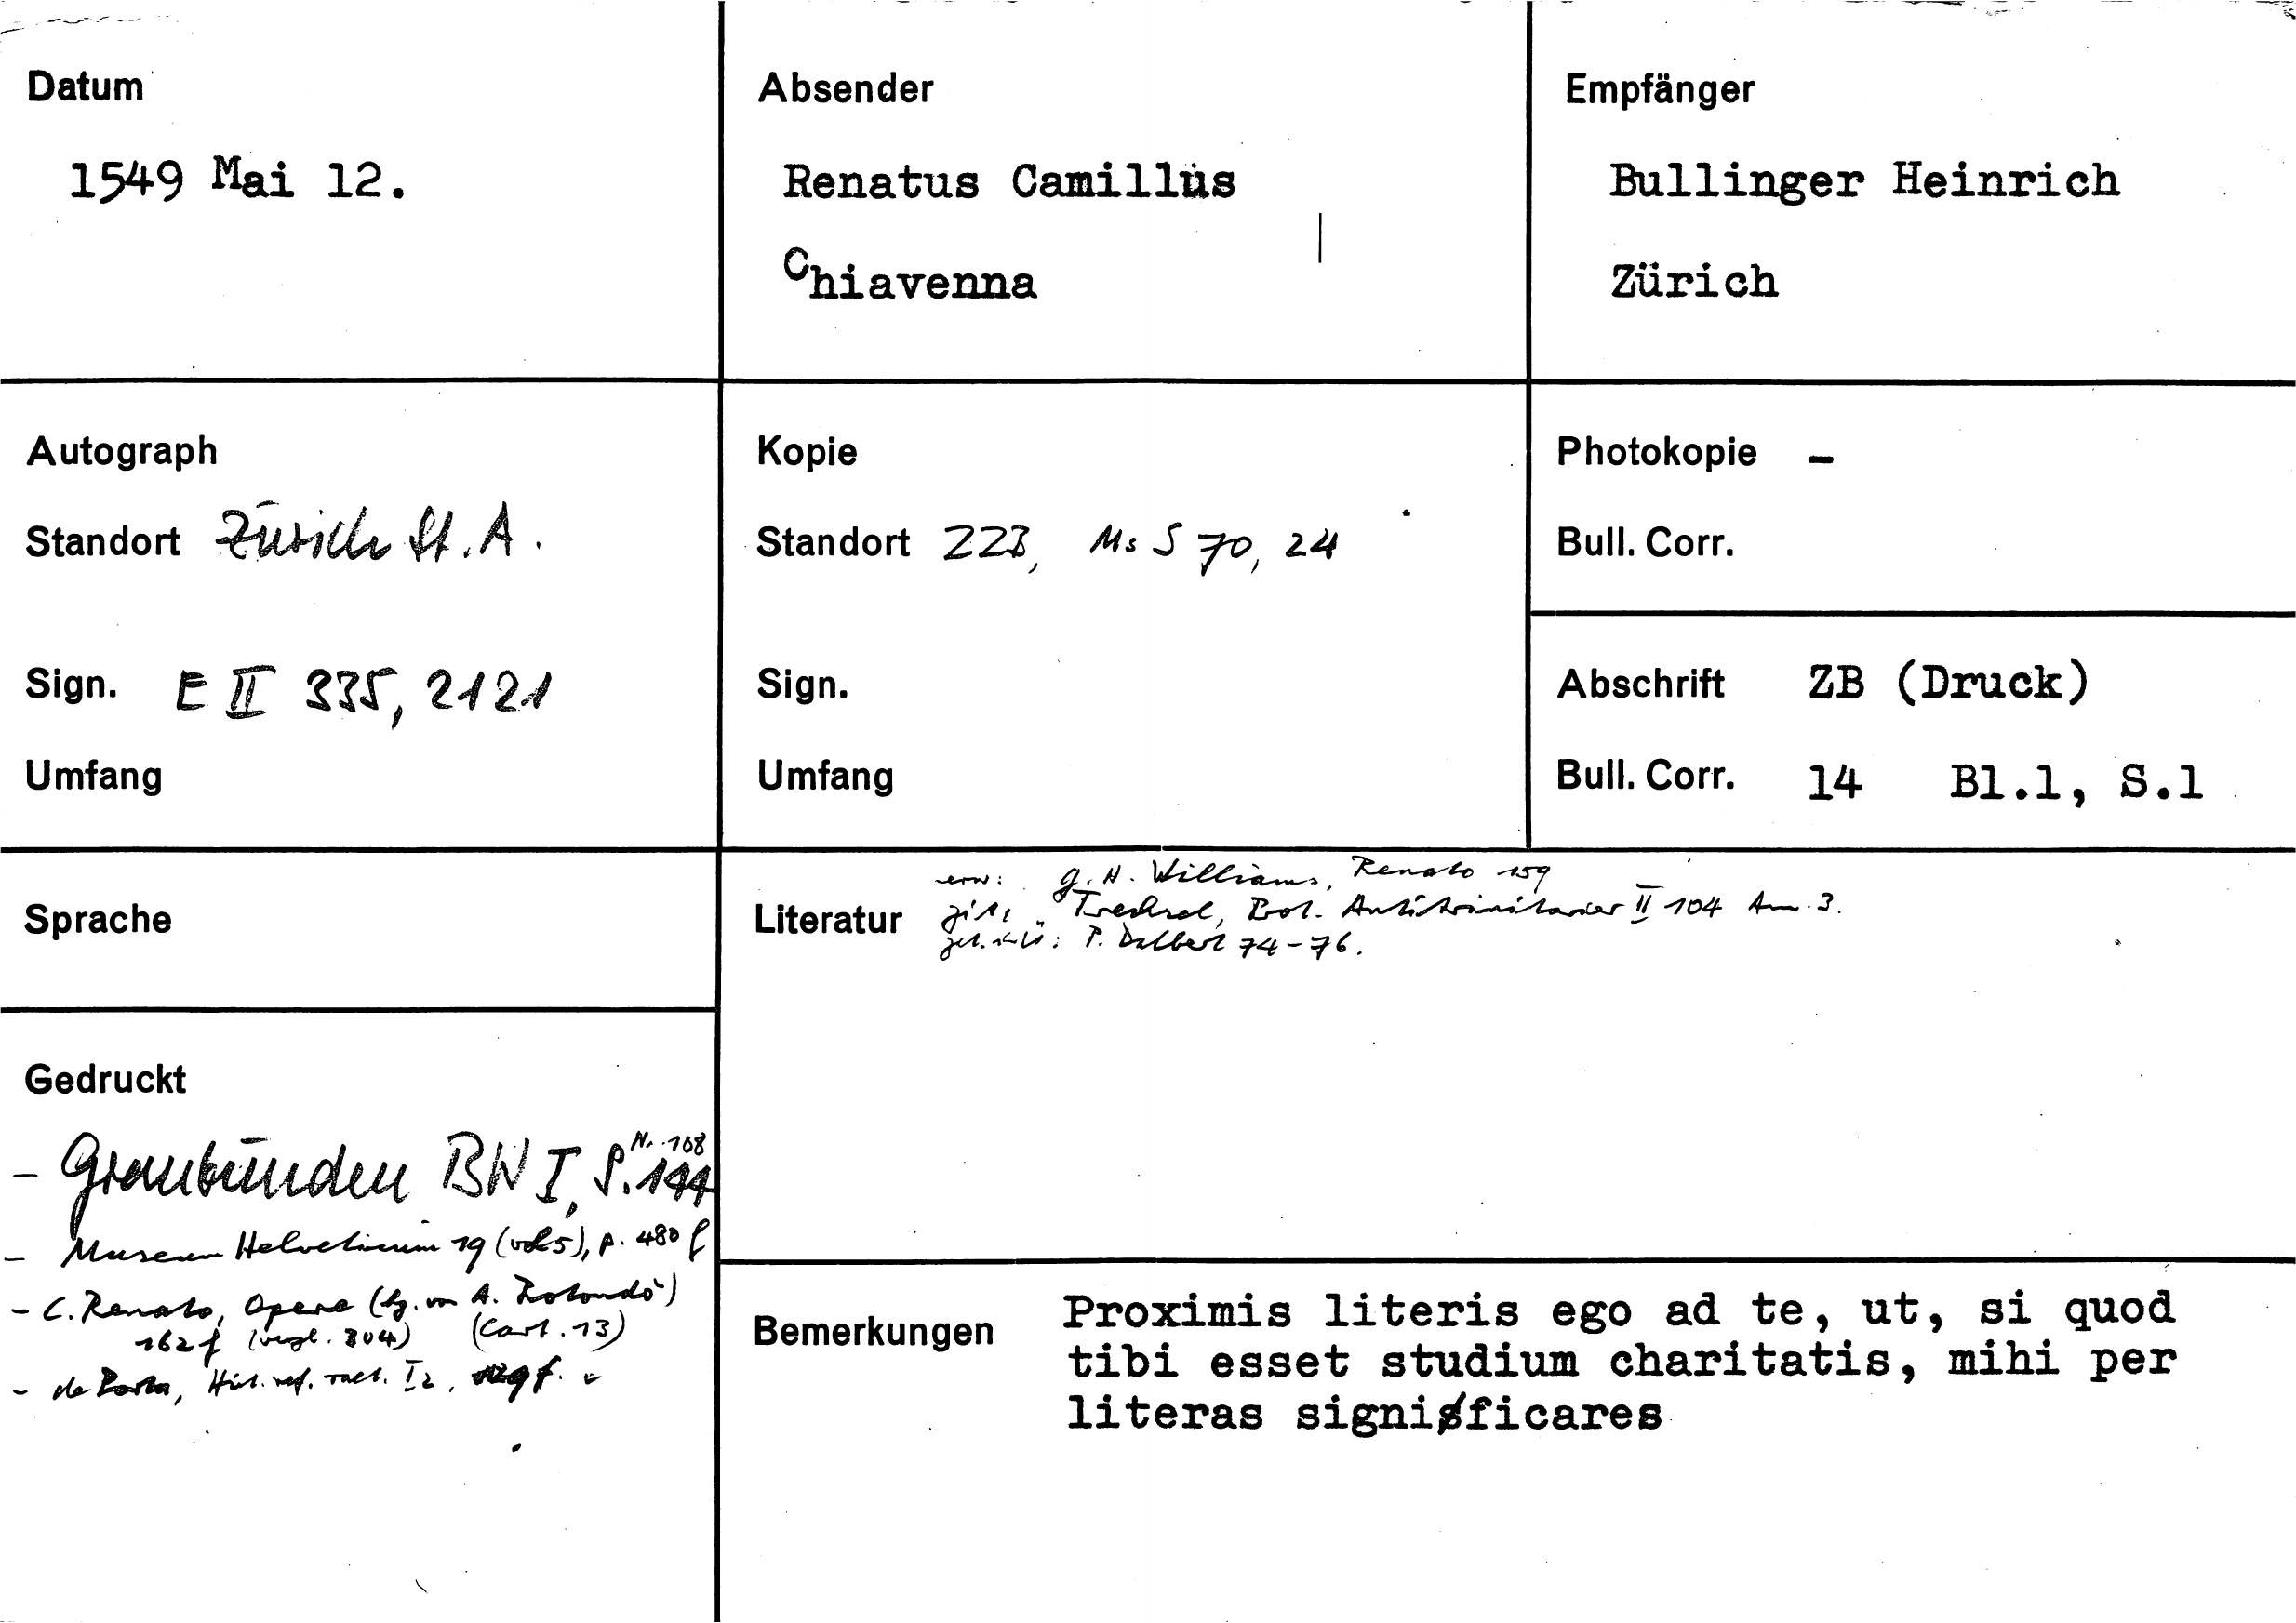 Datum
1549 Mai 12.
Absender
Renatus Camillus
Chiavenna
Empfänger
Bullinger Heinrich
Zürich
Autograph
Standort Zürich St. A.
Sign. E II 335, 2121
Umfang
Kopie
Standort ZZB, Ms S 70, 24
Sign.
Umfang
Photokopie –
Bull. Corr.
Abschrift ZB (Druck)
Bull. Corr. 14 Bl.1, S.1
Sprache
Literatur
erw: G. H. Williams, Renato 159
zit: Trechsel, Prot. Antitrinitarier II 104 Anm. 3.
P. Dalbert 74-76.
Gedruckt
Nr. 108
- Graubünden BW I, S. 144
- Museum Helveticum 19 (vol 5), p. 480 f
- C. Renato, Opere (hg. von A. Rotondò)
162 f (vergl. 304) (Cart. 13)
- de Porta, Hist. ref. raet. I 2,
Bemerkungen
Proximis literis ego ad te, ut, si quod
tibi esset studium charitatis, mihi per
literas significares